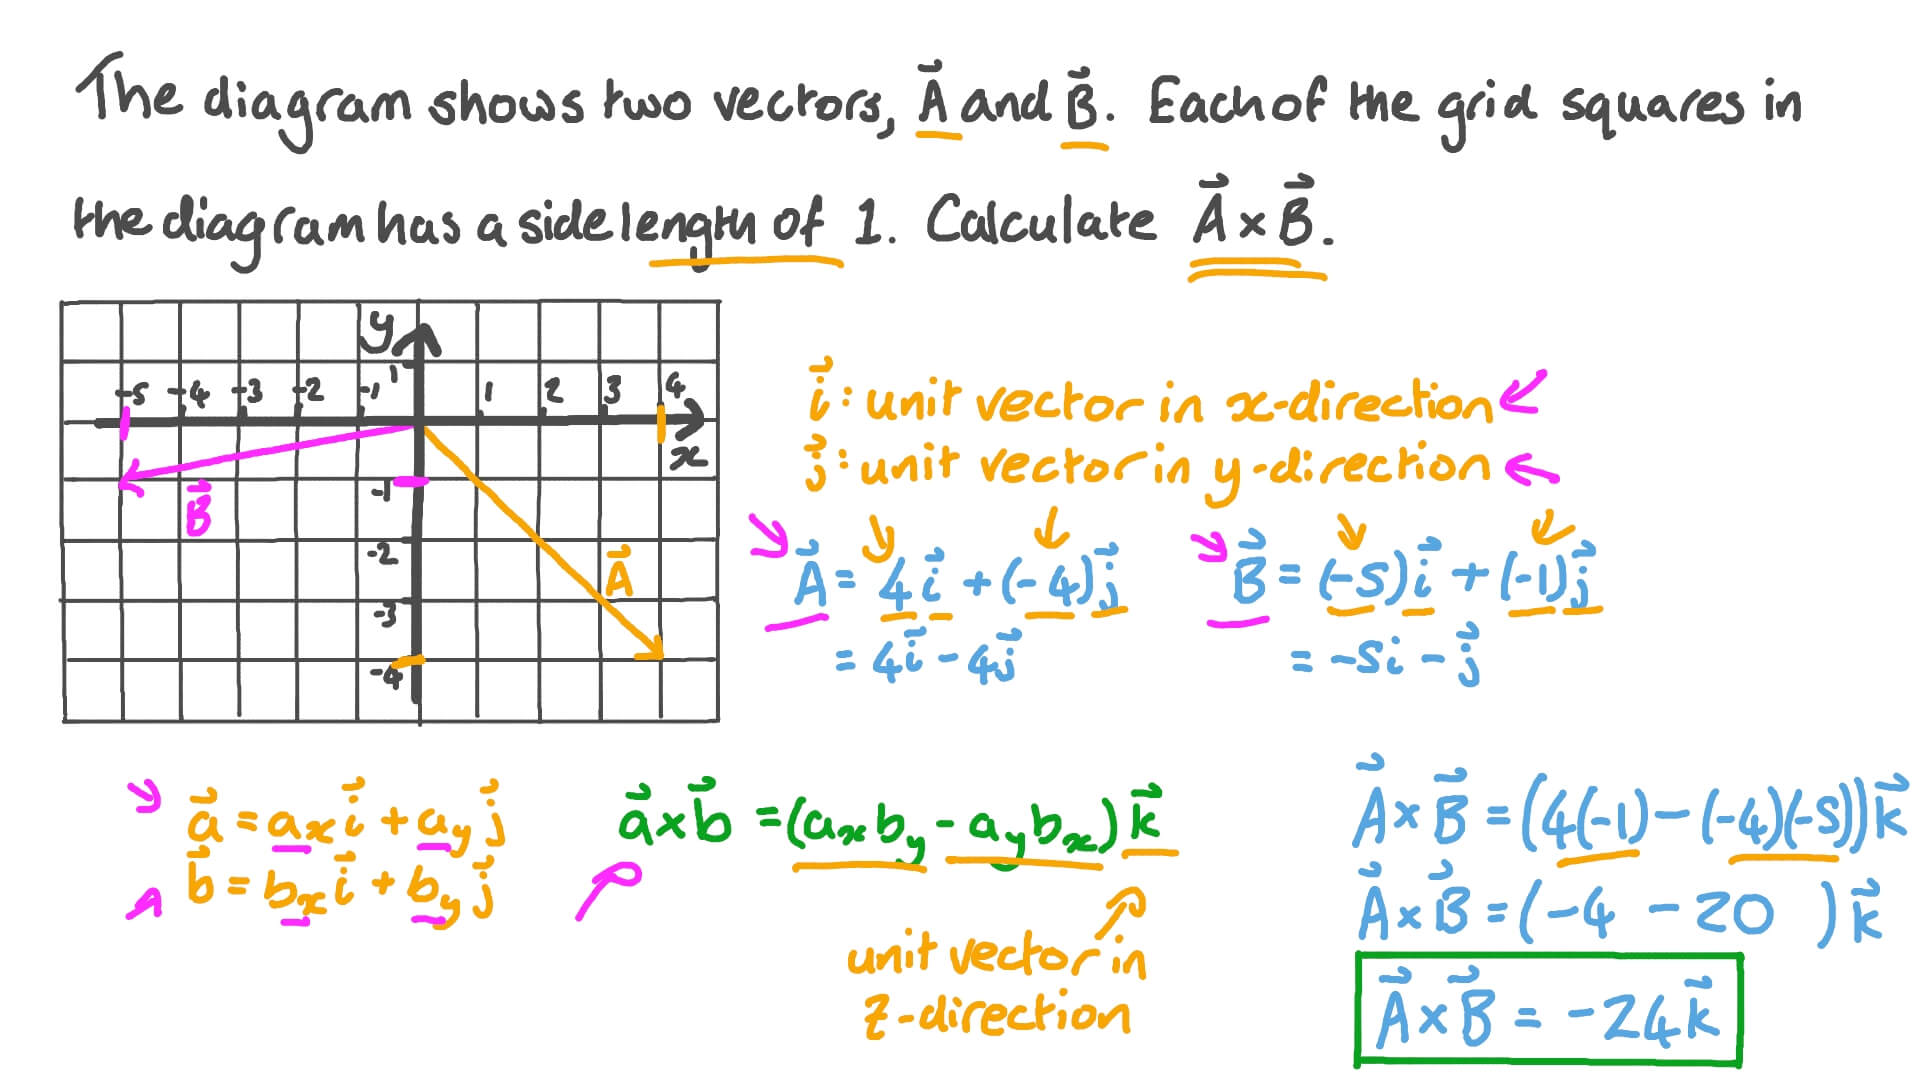 The diagram shows two vectors, A⃗ and B⃗. Each of the grid squares in
the diagram has a side length of 1. Calculate A⃗ × B⃗.
y
1
-5 -4 -3 -2 -1 1 2 3 4
x
B⃗
-1
-2
A⃗
-3
-4
i⃗ : unit vector in x-direction
j⃗ : unit vector in y-direction
A⃗ = 4i⃗ + (-4)j⃗
= 4i⃗ - 4j⃗
B⃗ = (-5)i⃗ + (-1)j⃗
= -5i - j⃗
a⃗ = aₓi⃗ + a_y j⃗
b⃗ = bₓi⃗ + b_y j⃗
a⃗ × b⃗ = (aₓb_y - a_y bₓ) k⃗
unit vector in
z-direction
A⃗ × B⃗ = (4(-1) - (-4)(-5)) k⃗
A⃗ × B⃗ = (-4 - 20 ) k⃗
A⃗ × B⃗ = -24k⃗